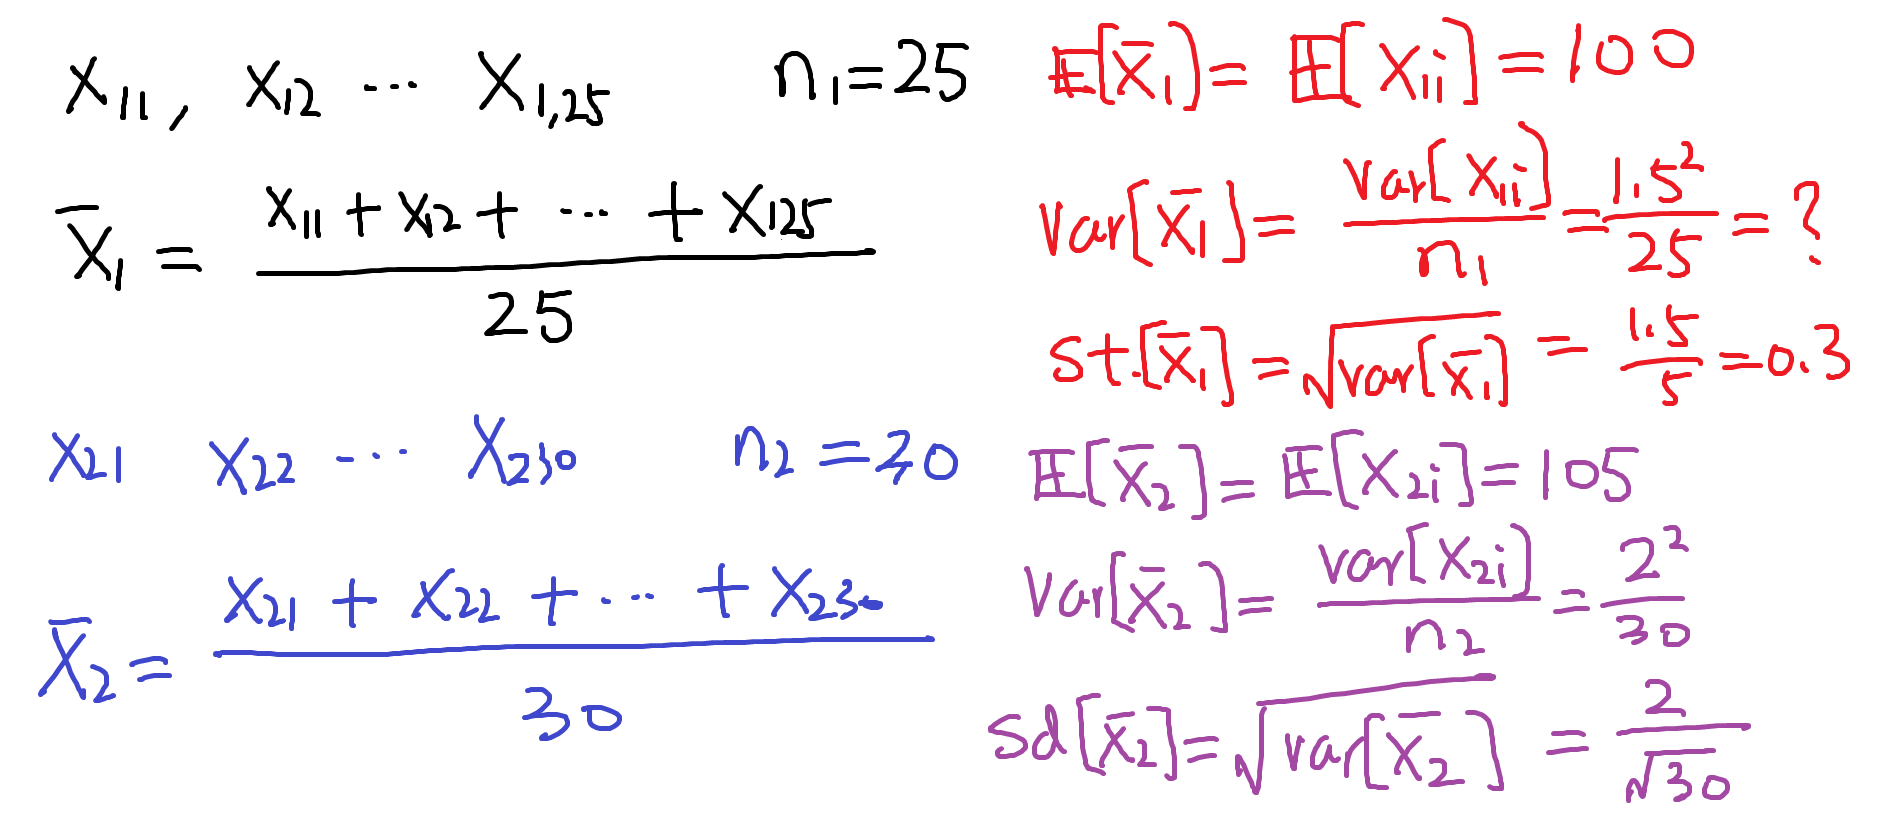 X₁₁, X₁₂ ... X₁,₂₅ n₁=25
X̄₁ = (X₁₁ + X₁₂ + ... + X₁₂₅) / 25
X₂₁ X₂₂ ... X₂₃₀ n₂ = 20
X̄₂ = (X₂₁ + X₂₂ + ... + X₂₃₀) / 30
𝔼[X̄₁] = 𝔼[X₁ᵢ] = 100
Var[X̄₁] = Var[X₁ᵢ] / n₁ = 1.5² / 25 = ?
st.[X̄₁] = √var[X̄₁] = 1.5 / 5 = 0.3
𝔼[X̄₂] = 𝔼[X₂ᵢ] = 105
Var[X̄₂] = var[X₂ᵢ] / n₂ = 2² / 30
sd[X̄₂] = √var[X̄₂] = 2 / √30